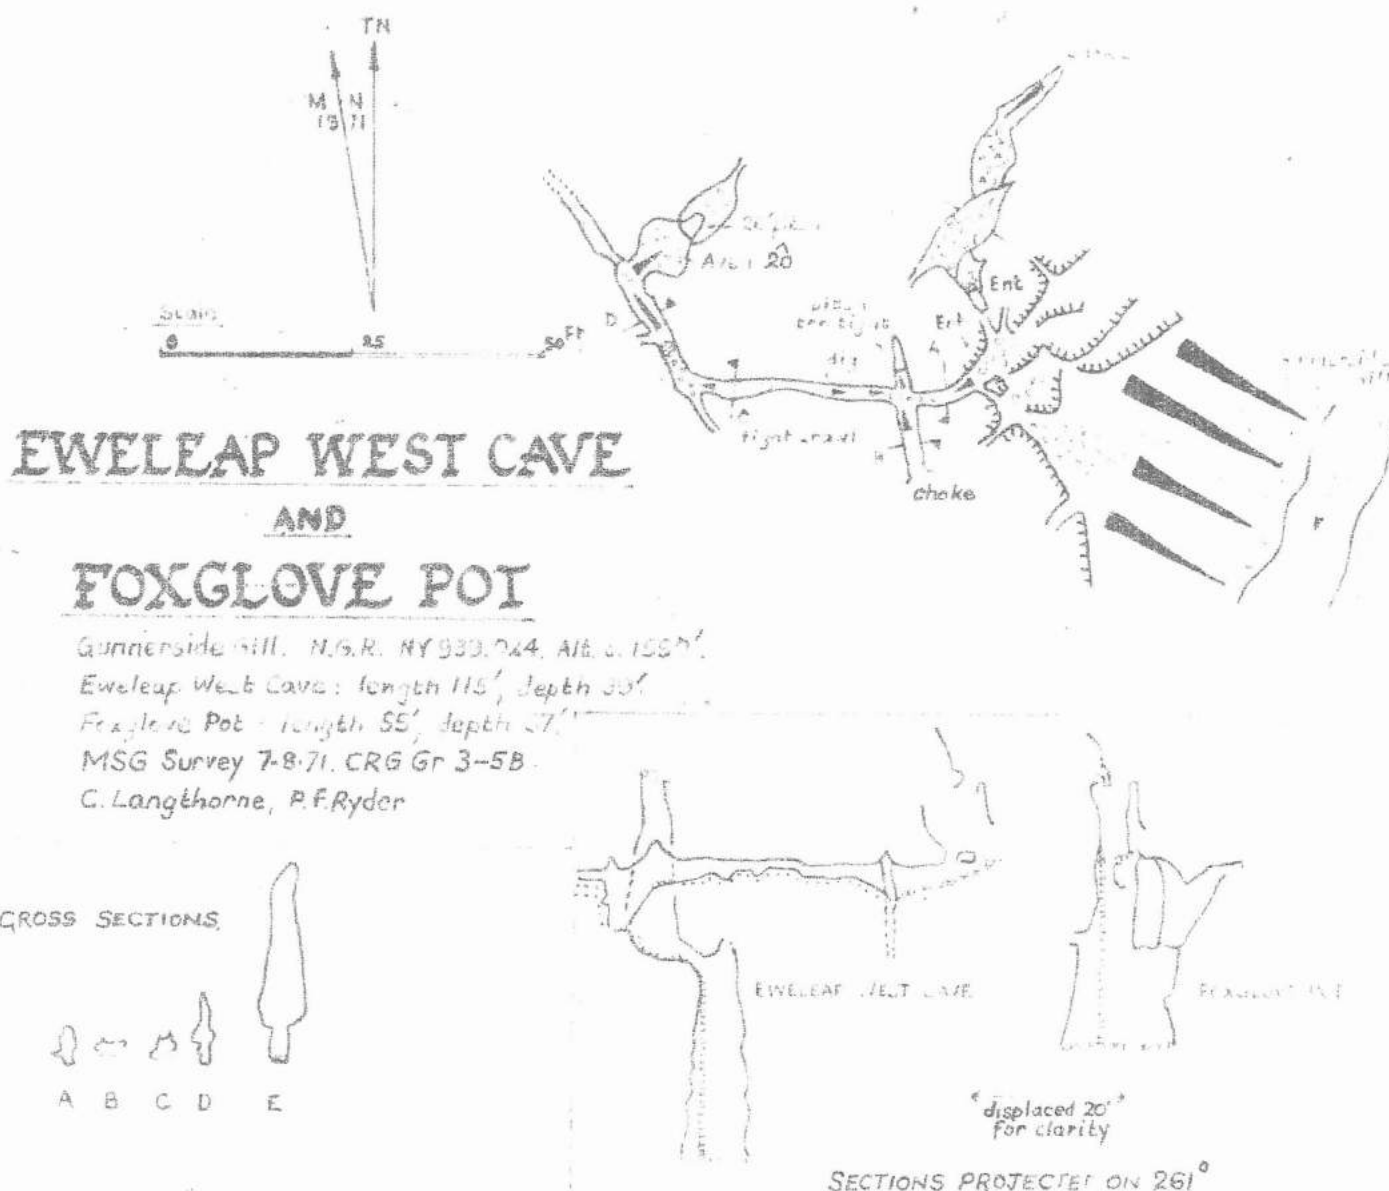 TN
M N
19 71
Scale
0 25 50 Ft
20
Ent
D
too tight
Ent
dig
A
A
tight crawl
choke
F
EWELEAP WEST CAVE
AND
FOXGLOVE POT
Gunnerside Gill. N.G.R. NY 939.024. Alt. c.
Eweleap West Cave: length 115', depth
Foxglove Pot : length 55', depth
MSG Survey 7-8-71. CRG Gr 3-5B
C. Langthorne, P.F. Ryder
CROSS SECTIONS
A B C D E
EWELEAP WEST CAVE
FOXGLOVE POT
displaced 20'
for clarity
SECTIONS PROJECTED ON 261°